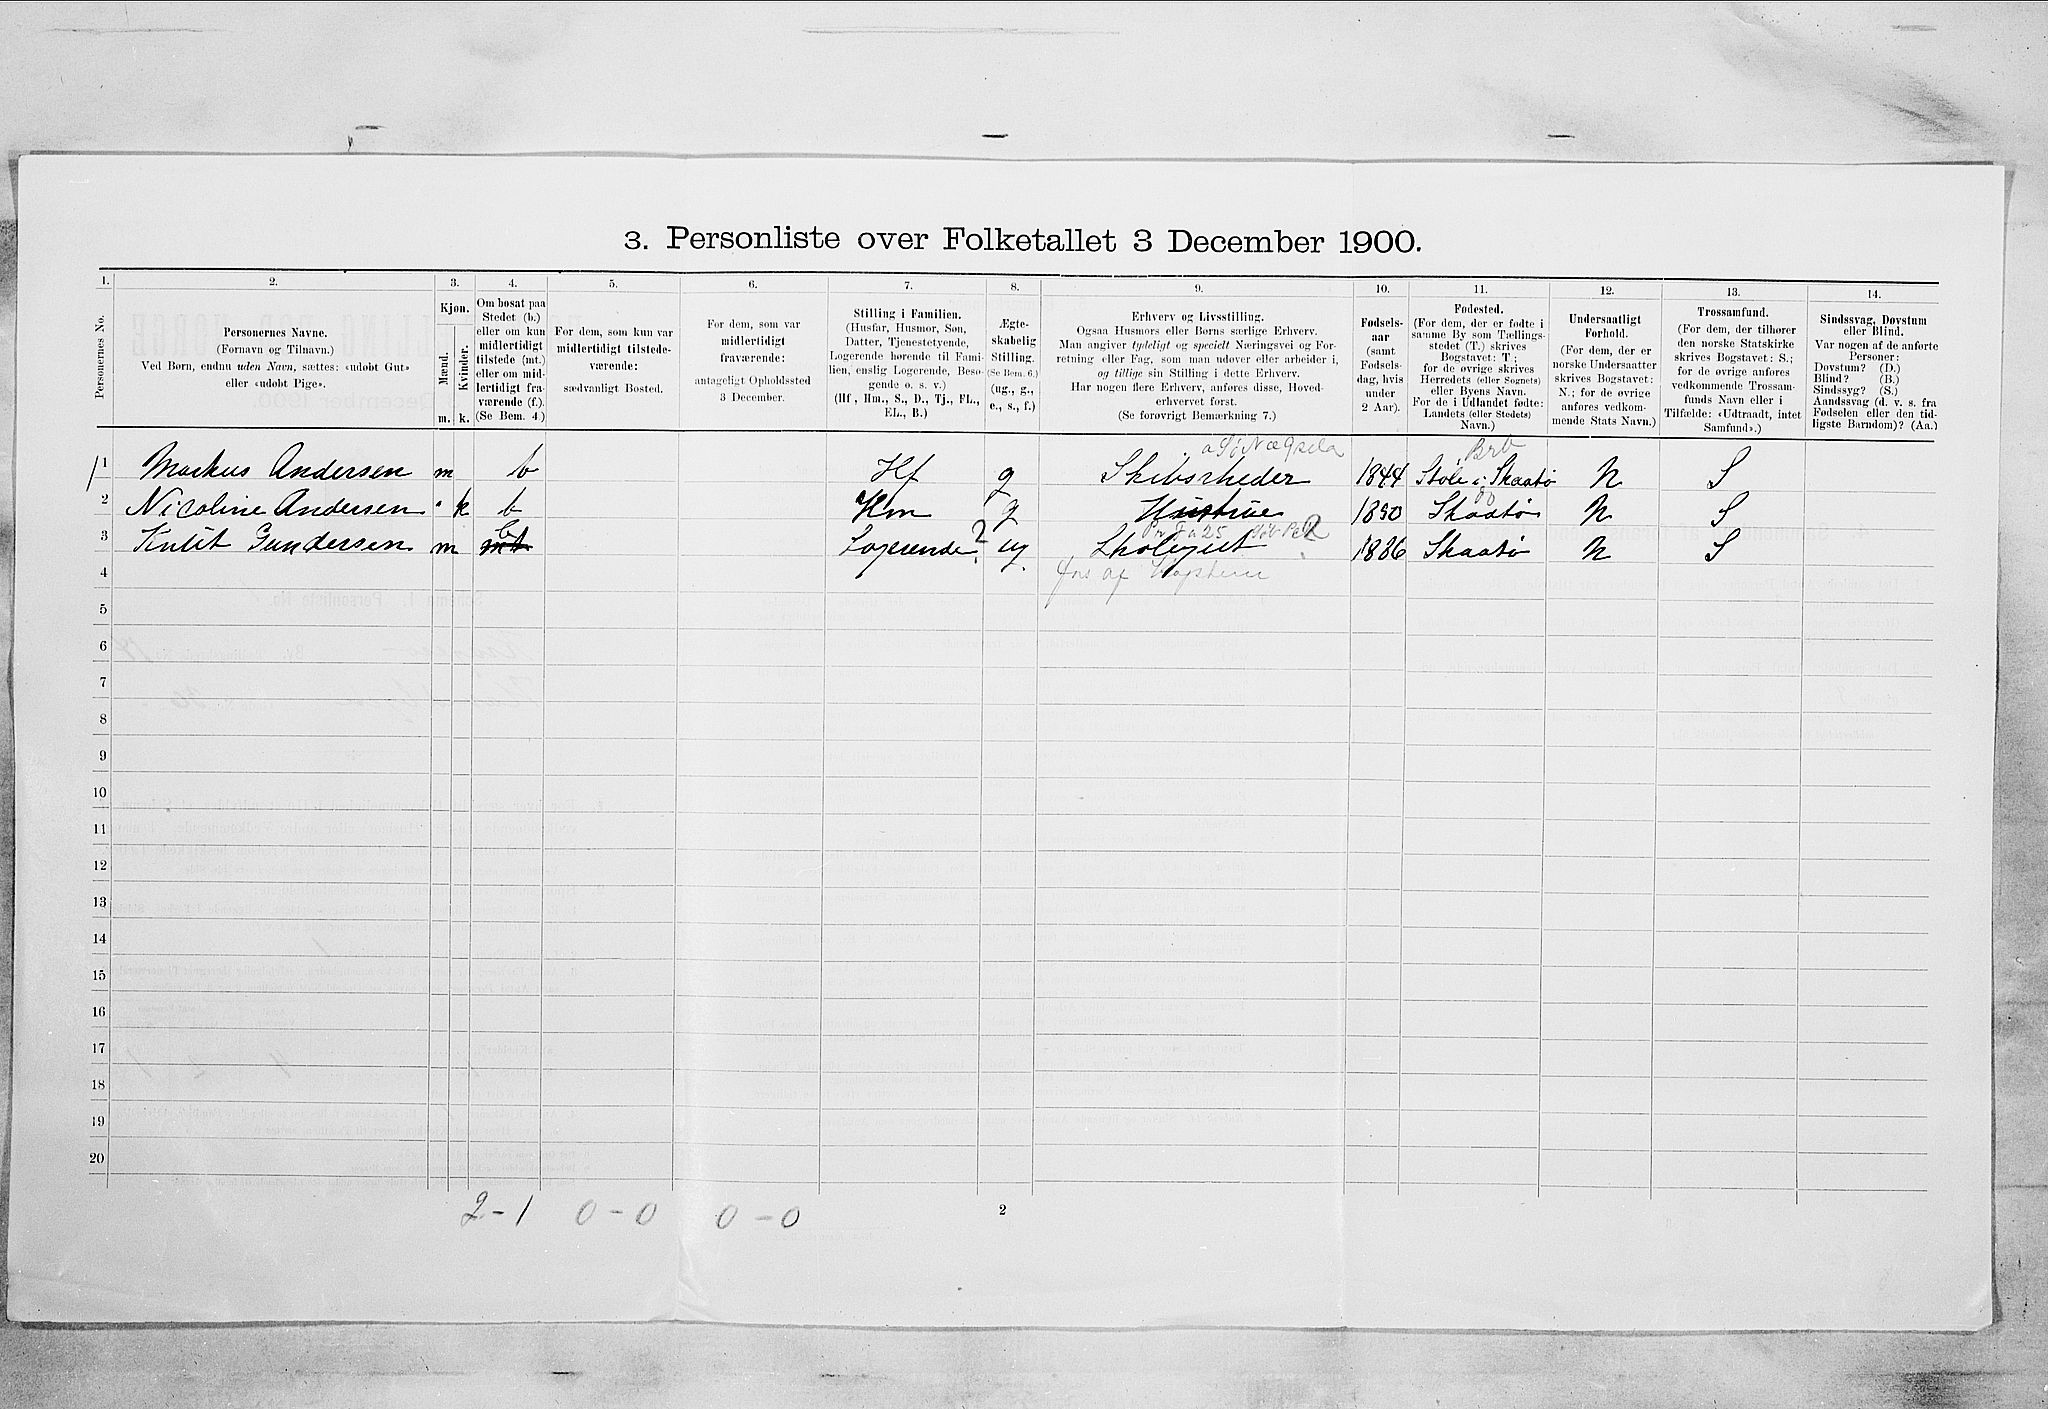 3. Personliste over Folketallet 3 December 1900.
1. 2. 3. 4. 5. 6. 7. 8. 9. 10. 11. 12. 13. 14.
Personernes No.
Personernes Navne.
(Fornavn og Tilnavn.)
Ved Børn, endnu uden Navn, sættes: «udobt Gut»
eller «udobt Pige».
Kjøn.
Mænd. Kvinder.
m. k.
Om bosat paa
Stedet (b.)
eller om kun
midlertidigt
tilstede (mt.)
eller om mid-
lertidigt fra-
værende (f.).
(Se Bem. 4.)
For dem, som kun var
midlertidigt tilstede-
værende:
sædvanligt Bosted.
For dem, som var
midlertidigt
fraværende:
antageligt Opholdssted
3 December.
Stilling i Familien.
(Husfar, Husmor, Søn,
Datter, Tjenestetyende,
Logerende hørende til Fami-
lien, enslig Logerende, Besø-
gende o. s. v.)
(Hf, Hm., S., D., Tj., FL.,
EL., B.)
Ægte-
skabelig
Stilling.
(Se Bem. 6.)
(ug., g.,
e., s., f.)
Erhverv og Livsstilling.
Ogsaa Husmors eller Børns særlige Erhverv.
Man angiver tydeligt og specielt Næringsvei og For-
retning eller Fag, som man udøver eller arbeider i,
og tillige sin Stilling i dette Erhverv.
Har nogen flere Erhverv, anføres disse, Hoved-
erhvervet først.
(Se forøvrigt Bemærkning 7.)
Fødsels-
aar
(samt
Fødsels-
dag, hvis
under
2 Aar).
Fødested.
(For dem, der er fødte i
samme By som Tællings-
stedet (T.) skrives
Bogstavet: T;
for de øvrige skrives
Herredets (eller Sognets)
eller Byens Navn.
For de i Udlandet fødte:
Landets (eller Stedets)
Navn.)
Undersaatligt
Forhold.
(For dem, der er
norske Undersaatter
skrives Bogstavet:
N.; for de øvrige
anføres vedkom-
mende Stats Navn.)
Trossamfund.
(For dem, der tilhører
den norske Statskirke
skrives Bogstavet: S.;
for de øvrige anføres
vedkommende Trossam-
funds Navn eller i
Tilfælde: «Udtraadt, intet
Samfund».)
Sindssvag, Døvstum
eller Blind.
Var nogen af de anførte
Personer:
Dovstum? (D.)
Blind? (B.)
Sindssyg? (S.)
Aandssvag (d. v. s. fra
Fødselen eller den tid-
ligste Barndom)? (Aa.)
1 Markus Andersen m b Hf g Skibsrheder 1844 Støle i Skaatø N S
2 Nicoline Andersen " k b Hm g Hustrue 1850 Skaatø N S
3 Knut Gundersen m mt b Logerende ? ug. Skolegut ? 1886 Skaatø N S
4
5
6
7
8
9
10
11
12
13
14
15
16
17
18
19
20
2-1 0-0 0-0
2